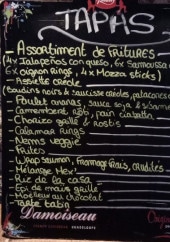 TAPAS
- Assortiment de FRITURES
(4x Jalapeños con queso, 6x Samoussa
6x oignon rings, 4x Mozza sticks)
- Assiette créole
(Boudins noirs & saucisse créoles,
- Poulet ananas, sauce soja &
- Camembert rôti, pain ciabatta
- Chorizo grillé & rostis
- Calamar rings
- Nems veggie
- Frites
- Wrap saumon, fromage frais, crudités
- Mélange Mex'
- Riz de la casa
- Epi de maïs grillé
- Moelleux au chocolat
- Tarte
Damoiseau
GUADELOUPE